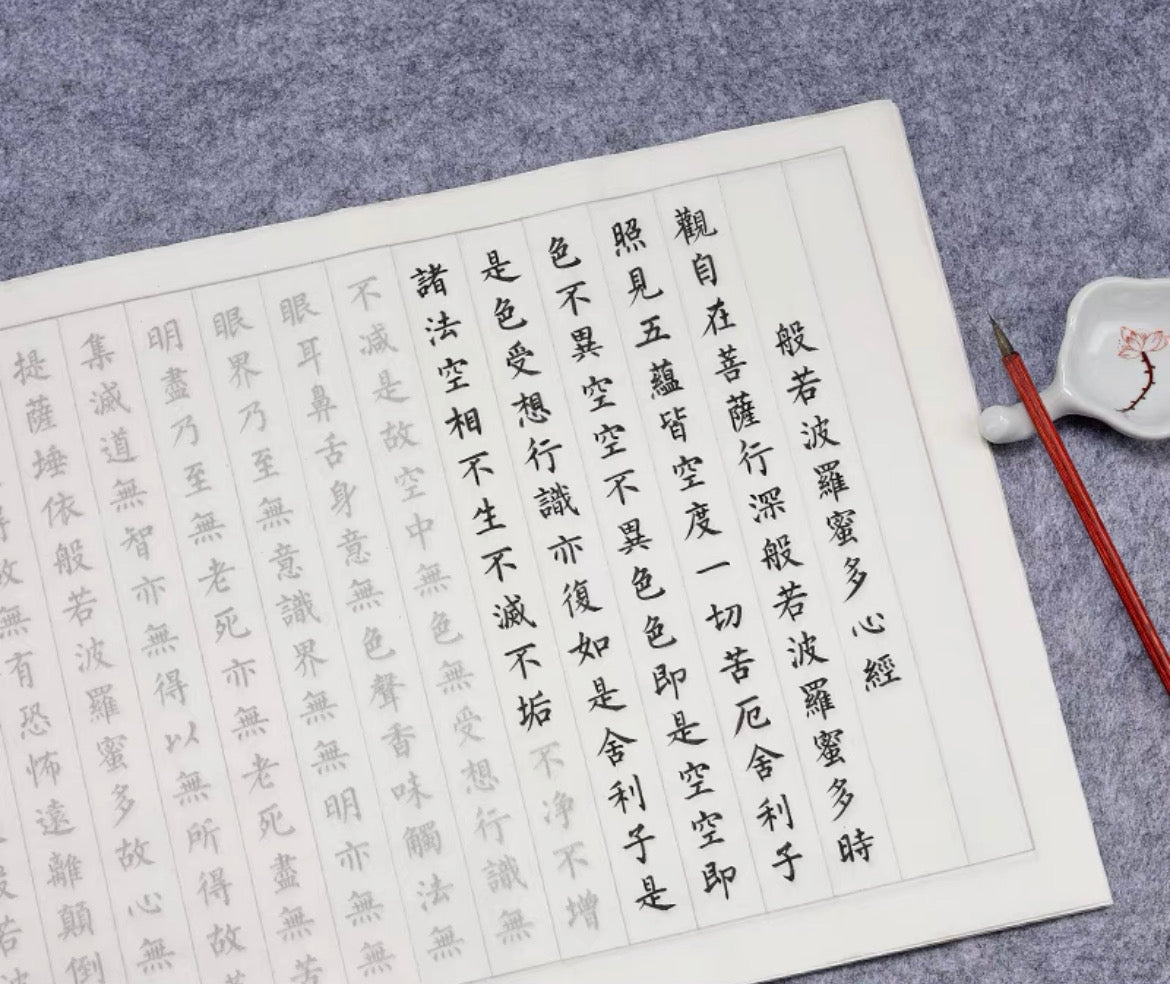 般若波羅蜜多心經
觀自在菩薩行深般若波羅蜜多時
照見五蘊皆空度一切苦厄舍利子
色不異空空不異色色即是空空即
是色受想行識亦復如是舍利子是
諸法空相不生不滅不垢不净不增
不減是故空中無色無受想行識無
眼耳鼻舌身意無色聲香味觸法無
眼界乃至無意識界無無明亦無無
明盡乃至無老死亦無老死盡無苦
集滅道無智亦無得以無所得故
提薩埵依般若波羅蜜多故心無
故無有恐怖遠離顛倒